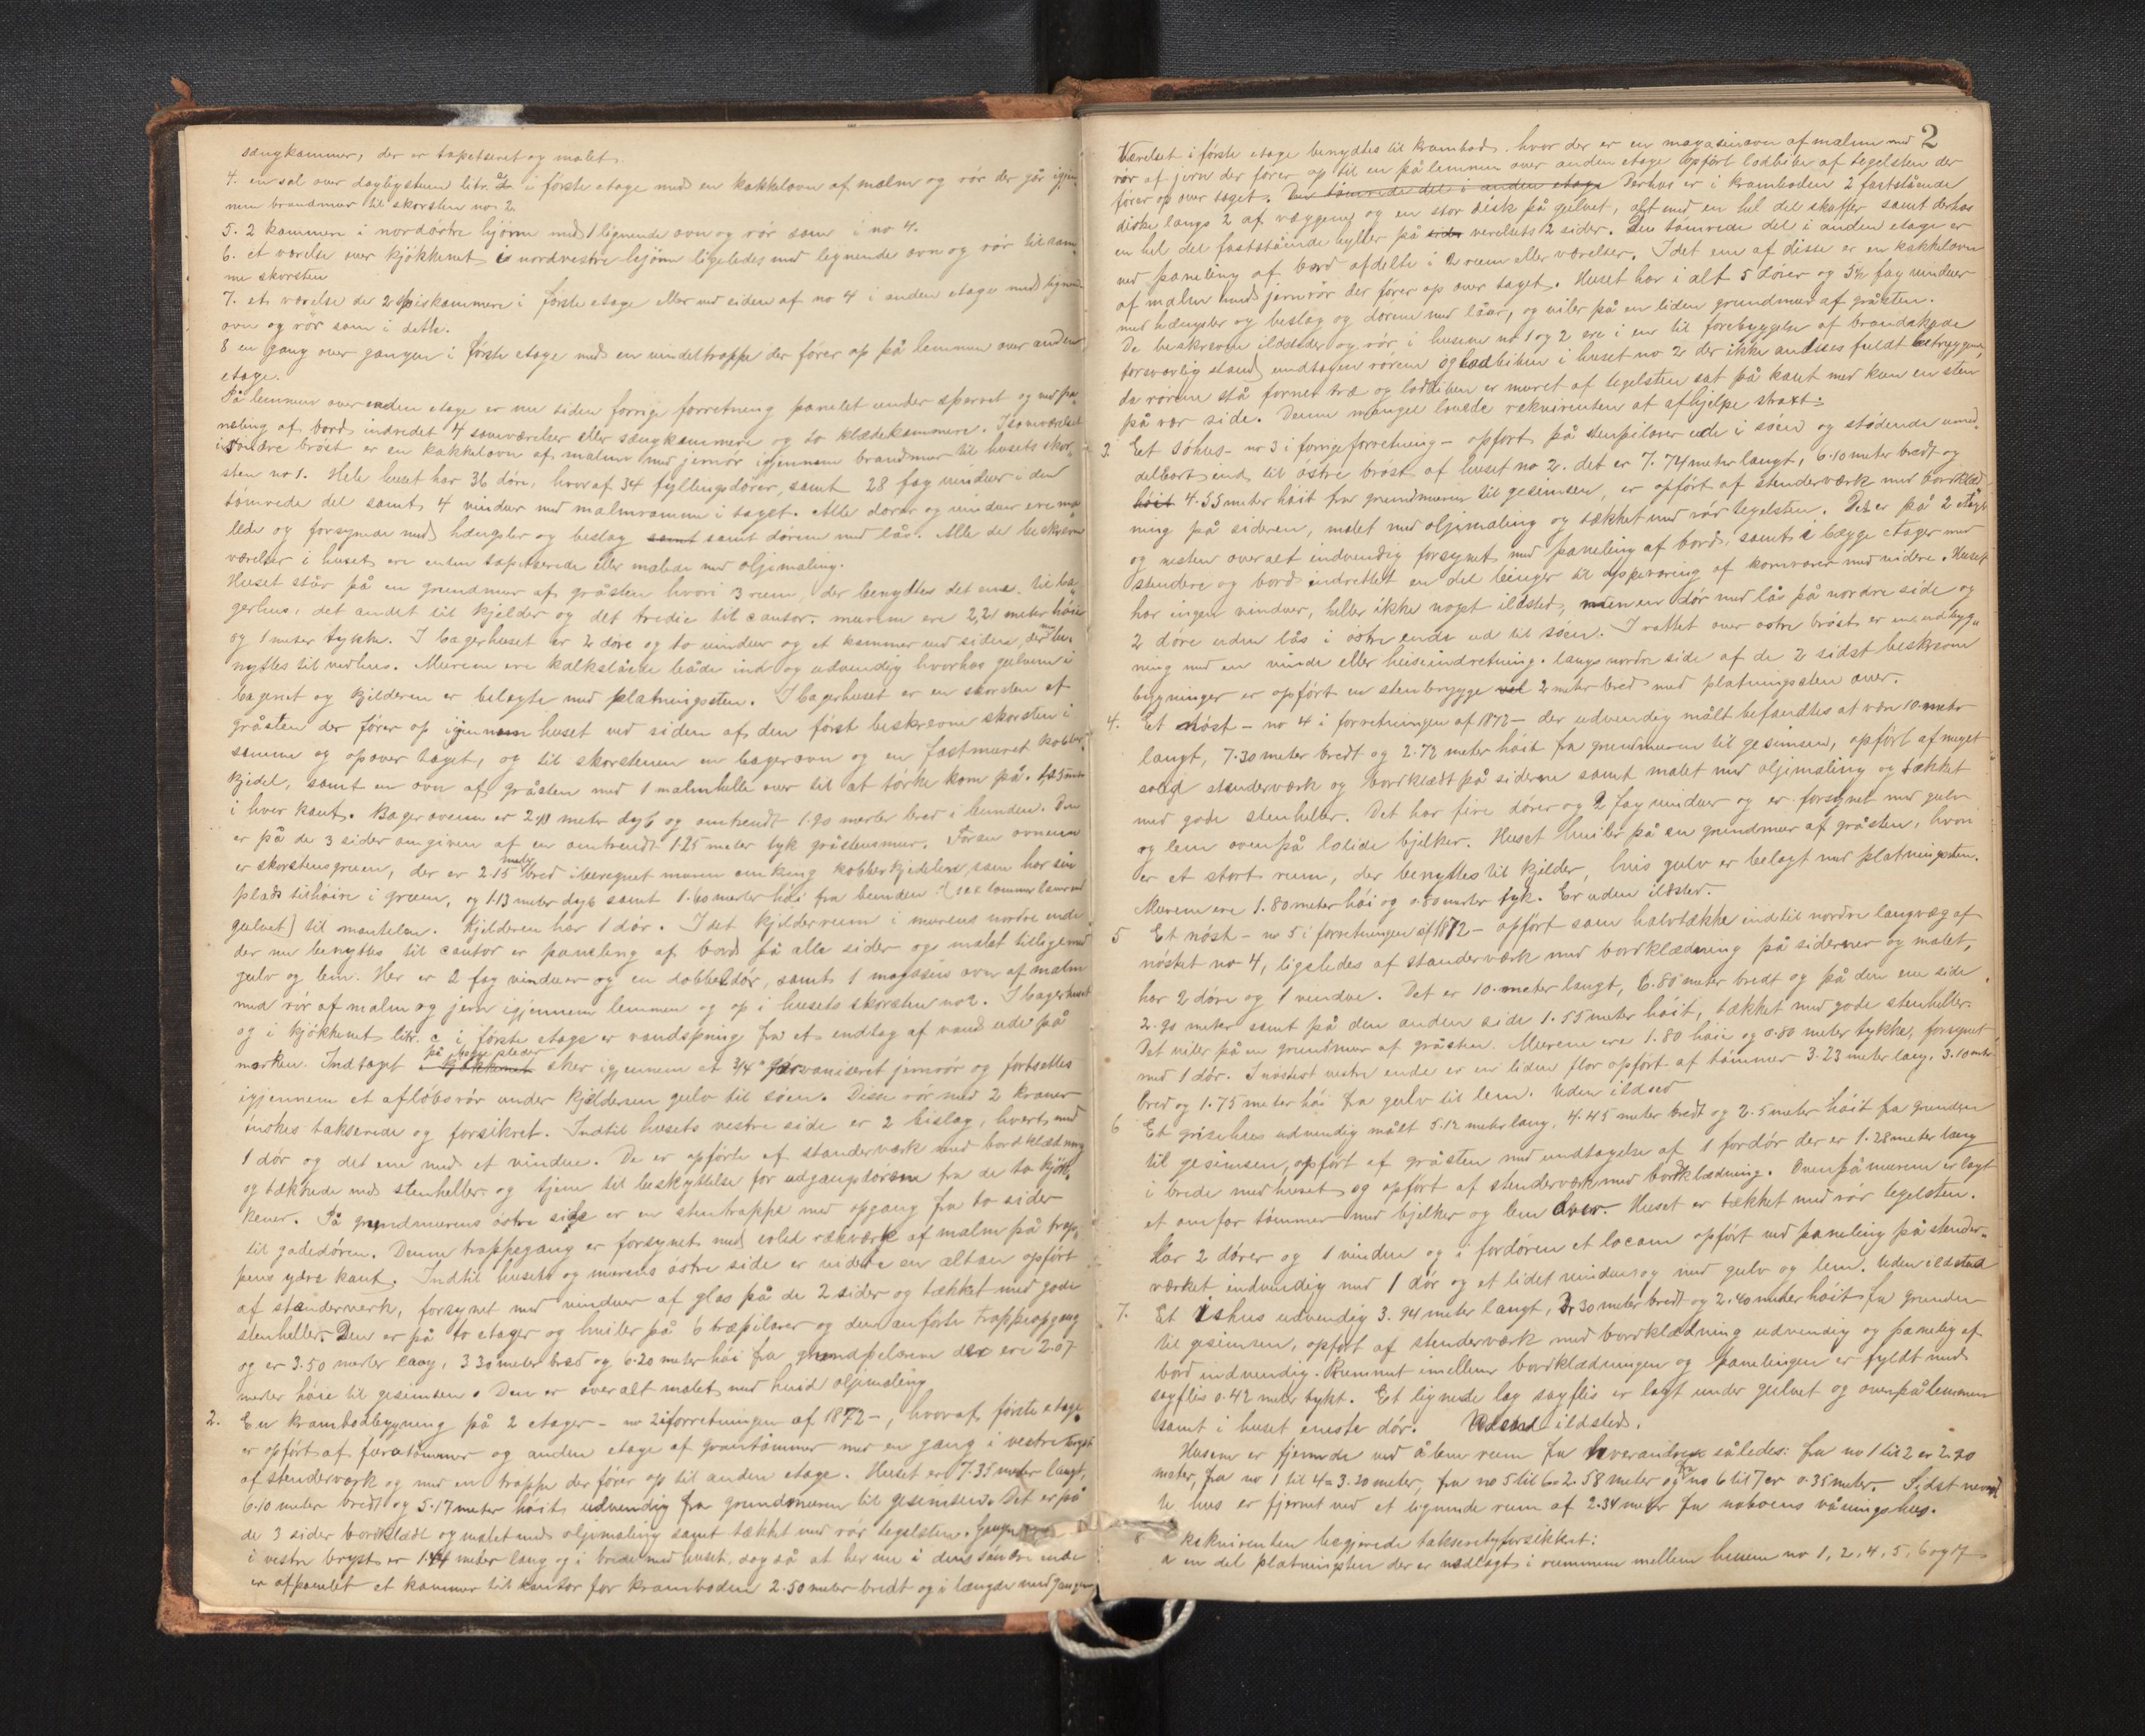 sængkammer, der er tapetseret og malet.
4. en sal over dagligstuen litr. a i første etage med en kakkelovn af malm og rör der går igjen-
nem brandmur til skorsten no 2
5. 2 kammere i nordöstre hjörne med 1 lignende ovn og rör som i no 4.
6. et værelse over kjökkenet i nordvestre hjörne ligeledes med lignende ovn og rör til sam-
me skorsten
7. et værelse de 2 spiskammere i förste etage eller ved siden af no 4 i anden etage med lignende
ovn og rör som i dette.
8 en gang over gangen i förste etage med en vindeltrappe der förer op på lemmen over anden
etage.
På lemmen over anden etage er nu siden forrige forretning panelet under sperret og ved pa-
neling af bord indredet 4 soveværelser eller sængkammere og to klædekammere. I soveværelset
i söndre bröst er en kakkelovn af malm med jernrör igjennem brandmur til husets skor-
sten no 1. Hele huset har 36 döre, hvoraf 34 fyllingsdörer, samt 28 fag vinduer i den
tömrede del samt 4 vinduer med malmramme i taget. Alle dörer og vinduer ere ma-
lede og forsynede med hængsler og beslag samt samt dörene med lås. Alle de beskrevne
værelser i huset ere enten tapetserede eller malede med oljemaling.
Huset står på en grundmur af gråsten hvori 3 rum, der benyttes det ene til ba-
gerhus, det andet til kjelder og det tredie til cantor. murene ere 2,21 meter höie
og 1 meter tykke. I bagerhuset er 2 döre og to vinduer og et kammer ved siden, der nu be-
nyttes til vedhus. Murene ere kalkslåede både ind og udvendig hvorhos gulvene i
bageriet og kjelderen er belagte med platningssten. I bagerhuset er en skorsten af
gråsten der förer op igjennem huset ved siden af den först beskrevne skorsten i
samme og opover taget, og til skorstenen en bagerovn og en fastmuret kobber-
kjedel, samt en ovn af gråsten med 1 malmhelle over til at törke korn på. 1.25 meter
i hver kant. Bagerovnen er 2.10 meter dyb og omtrendt 1.90 meter bred i bunden. Den
er på de 3 sider omgiven af en omtrendt 1.25 meter tyk gråstensmur. Foran ovnene
er skorstensgruen, der er 2.15 meter bred iberegnet muren omkring kobberkjedelen som har sin
plads tilhöire i gruen, og 1.13 meter dyb samt 1.60 meter höi fra bunden (sex tommer lavere end
gulvet) til mantelen. Kjelderen har 1 dör. I det kjelderrum i murens nordre ende
der nu benyttes til cantor er paneling af bord på alle sider og malet tillige med
gulv og lem. Her er 2 fag vinduer og en dobbeldör, samt 1 magasins ovn af malm
med rör af malm og jern igjennem lemmen og op i husets skorsten no 2. I bagerhuset
og i kjökkenet litr. c i förste etage er vandspring fra et indtag af vand ude på
marken. Indtaget i kjökkenet på begge steder sker igjennem et 3/4" galvaniseret jernrör og fortsettes
igjennem et aflöbsrör under kjelderens gulv til söen. Disse rör med 2 kraner
önskes takserede og forsikret. Indtil husets vestre side er 2 bislag, hvert med
1 dör og det ene med et vindue. De er opförte af stenderværk med bordklædning
og tækkede med stenheller og tjene til beskyttelse for udgangsdörene fra de to kjök-
kener. På grundmurens östre side er en stentrappe med opgang fra to sider
til gadedören. Denne trappegang er forsynet med solid rækværk af malm på trap-
pens ydre kant. Indtil husets og murens östre side er videre en altan opfört
af stenderverk, forsynet med vinduer af glas på de 2 sider og tækket med gode
stenheller. Den er på to etager og hviler på 6 træpilarer og den anförte trappeopgang
og er 3.50 meter lang, 3.30 meter bred og 6.20 meter höi fra grundpelarene der ere 2.07
meter höie til gesimsen. Den er overalt malet med hvid oljemaling
2. En krambodbygning på 2 etager - no 2 i forretningen af 1872 -, hvoraf förste etage
er opfört af furutömmer og anden etage af grantömmer med en gang i vestre bryst
af stenderværk og med en trappe der förer op til anden etage. Huset er 7.35 meter langt,
6.10 meter bredt og 5.17 meter höit udvendig fra grundmuren til gesimsen. Det er på
de 3 sider bordklædt og malet med oljemaling samt tækket med rör tegelsten. Gangen
i vestre bryst er 1.44 meter lang og i brede med huset, dog så at her nu i dens söndre ende
er afpanelet et kammer til kantor for kramboden 2.50 meter bredt og i længde med gangen
2
Værelset i förste etage benyttes til krambod, hvor der er en magasinovn af malm med
rör af jern der förer op til en på lemmen over anden etage opfört lodbiben af tegelsten der
förer op over taget. Den tömrede del i anden etage Derhos er i kramboden 2 faststående
diske langs 2 af væggene og en stor disk på gulvet, alt med en hel del skuffer samt derhos
en hel del faststående hyller på sider verelsets 2 sider. Den tömrede del i anden etage er
ved paneling af bord afdelte i 2 rum eller værelser. I det ene af disse er en kakkelovn
af malm med jernrör der förer op over taget. Huset har i alt 5 dörer og 5½ fag vinduer
med hængsler og beslag og dörene med låse, og viler på en liden grundmur af gråsten.
De beskrevne ildsteder og rör i husene no 1 og 2 ere i en til forebyggelse af brandskade
forsvarlig stand undtagen rörene og lodbiben i huset no 2 der ikke ansees fuldt betryggende,
da rörene stå fornær træ og lodbiben er muret af tegelsten sat på kant med kun en sten
på vær side. Denne mangel lovede rekvirenten at afhjelpe straxt.
3. Et söhus - no 3 i forrige forretning - opfört på stenpilarer ude i söen og stödende umid-
delbart ind til östre bröst af huset no 2. det er 7.74 meter langt, 6.10 meter bredt og
höit 4.55 meter höit fra grundmuren til gesimsen, er opfört af stenderværk med bordklæd-
ning på siderne, malet med oljemaling og tækket med rör tegelsten. Det er på 2 etager
og nesten overalt indvendig forsynet med paneling af bord, samt i begge etager med
stendere og bord indrettet en del binger til opbevaring af kornvarer med videre. Huset
har ingen vinduer, heller ikke noget ildsted, men en dör med lås på nordre side og
2 döre uden lås i östre ende ud til söen. I raftet over östre bröst er en udbyg-
ning med en vinde eller heiseindretning. langs nordre side af de 2 sidst beskrevne
bygninger er opfört en stenbrygge ved 2 meter bred med platningssten over.
4. Et nöst - no 4 i forretningen af 1872 - der udvendig målt befandtes at være 10 meter
langt, 7.30 meter bredt og 2.72 meter höit fra grundmuren til gesimsen, opfört af meget
solid stenderværk og bordklædt på siderne samt malet med oljemaling og tækket
med gode stenheller. Det har fire dörer og 2 fag vinduer og er forsynet med gulv
og lem ovenpå solide bjelker. Huset hviler på en grundmur af gråsten, hvori
er et stort rum, der benyttes til kjelder, hvis gulv er belagt med platningssten.
Murene ere 1.80 meter höi og 0.80 meter tyk. Er uden ildsted.
5 Et nöst - no 5 i forretningen af 1872 - opfört som halvtække indtil nordre langvæg af
nöstet no 4, ligeledes af stenderværk med bordklædning på siderne og malet,
har 2 döre og 1 vindue. Det er 10 meter langt, 6.80 meter bredt og på den ene side
2.90 meter samt på den anden side 1.55 meter höit, tækket med gode stenheller.
Det viler på en grundmur af gråsten. Murene ere 1.80 höie og 0.80 meter tykke, forsynet
med 1 dör. I nöstets vestre ende er en liden flor opfört af tömmer 3.23 meter lang, 3.10 meter
bred og 1.75 meter höi fra gulv til lem. Uden ildsted
6 Et grisehus udvendig målt 5.12 meter lang, 4.45 meter bredt og 2.5 meter höit fra grunden
til gesimsen, opfört af gråsten med undtagelse af 1 fordör der er 1.28 meter lang
i brede med huset og opfört af stenderværk med bordklædning. Ovenpå muren er lagt
et omfar tömmer med bjelker og lem over. Huset er tækket med rör tegelsten.
har 2 dörer og 1 vindue og i fordören et locum opfört ved paneling på stender-
værket indvendig med 1 dör og et lidet vindue og med gulv og lem. Uden ildsted
7. Et ishus udvendig 3.94 meter langt, 3.30 meter bredt og 2.40 meter höit fra grunden
til gesimsen, opfört af stenderværk med bordklædning udvendig og paneling af
bord indvendig. Rummet imellem bordklædningen og panelingen er fyldt med
sagflis 0.42 meter tykt. Et lignende lag sagflis er lagt under gulvet og ovenpå lemmen
samt i huset eneste dör. Uden ildsted.
Husene er fjernede ved åbne rum fra hverandre således: fra no 1 til 2 er 2.20
meter, fra no 1 til 4 = 3.20 meter, fra no 5 til 6 = 2.58 meter og fra no 6 til 7 er 0.35 meter. Sidst nevnt
te hus er fjernet ved et lignende rum af 2.34 meter fra naboens våningshus.
8 Rekvirenten begjerede takseret og forsikket:
a en del platningsten der er nedlagt i rummene mellem husene no 1, 2, 4, 5, 6 og 7